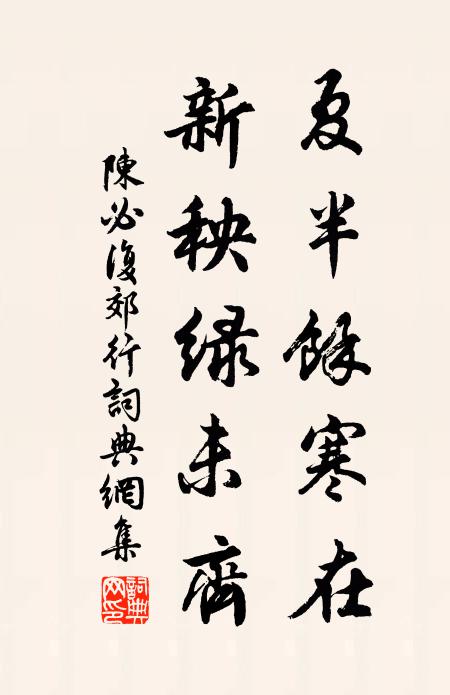 夏半餘寒在
新秧緑未齊
陳必復郊行詞典網集
詞典网印